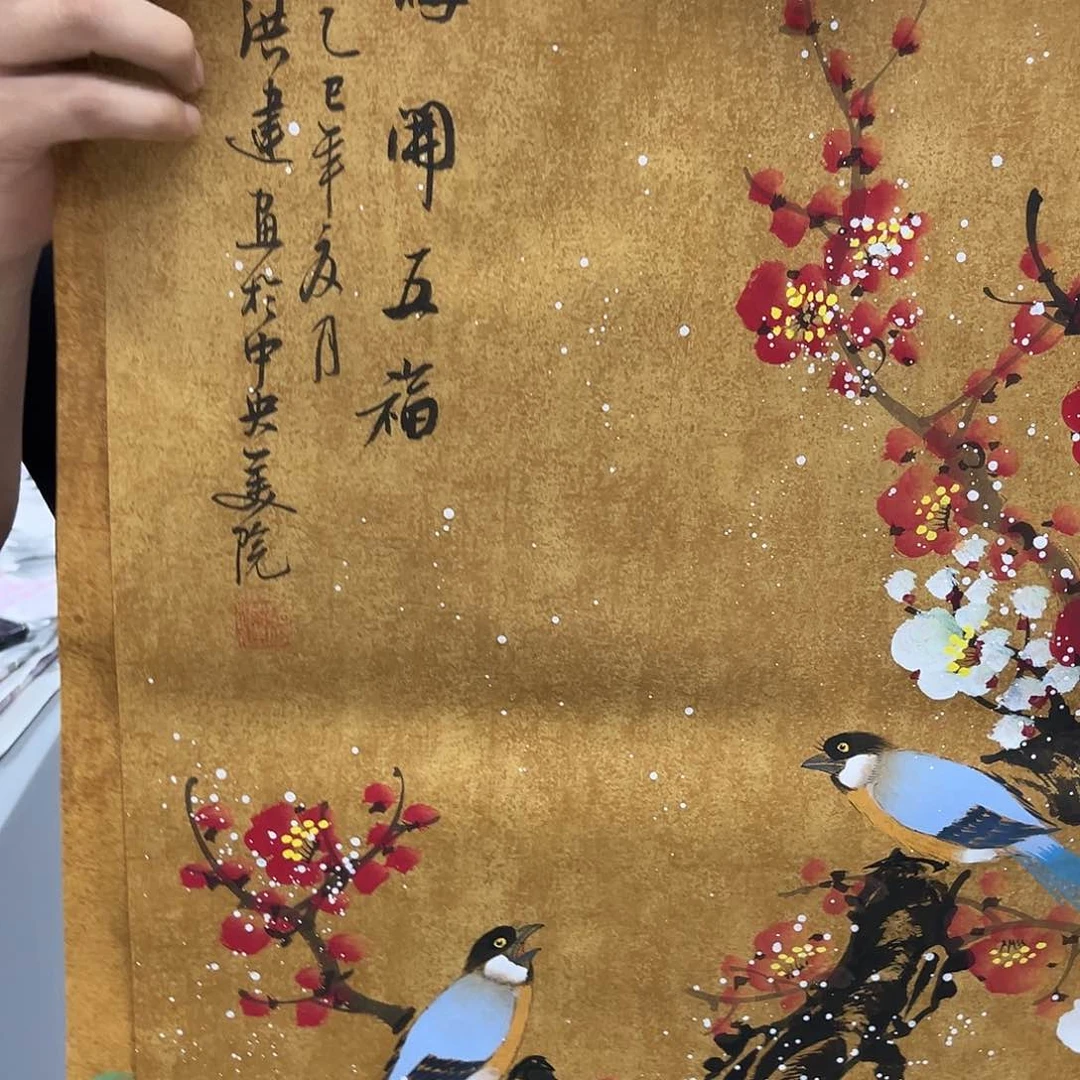 開五福
乙巳年夏月
洪建画於中央美院